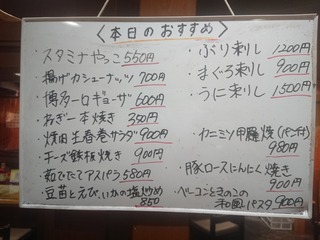 〈本日のおすすめ〉
・スタミナやっこ 550円
・揚げカシューナッツ 700円
・博多一口ギョーザ 600円
・ねぎ一本焼き 350円
・生春巻サラダ 900円
・チーズ鉄板焼き 900円
・茹でたてアスパラ 580円
・豆苗とえび、いかの塩炒め 850
・ぶり刺し 1200円
・まぐろ刺し 900円
・うに刺し 1500円
・カニミソ甲羅焼(パン付) 980円
・豚ロースにんにく焼き 900円
・ベーコンときのこの
和風パスタ 900円